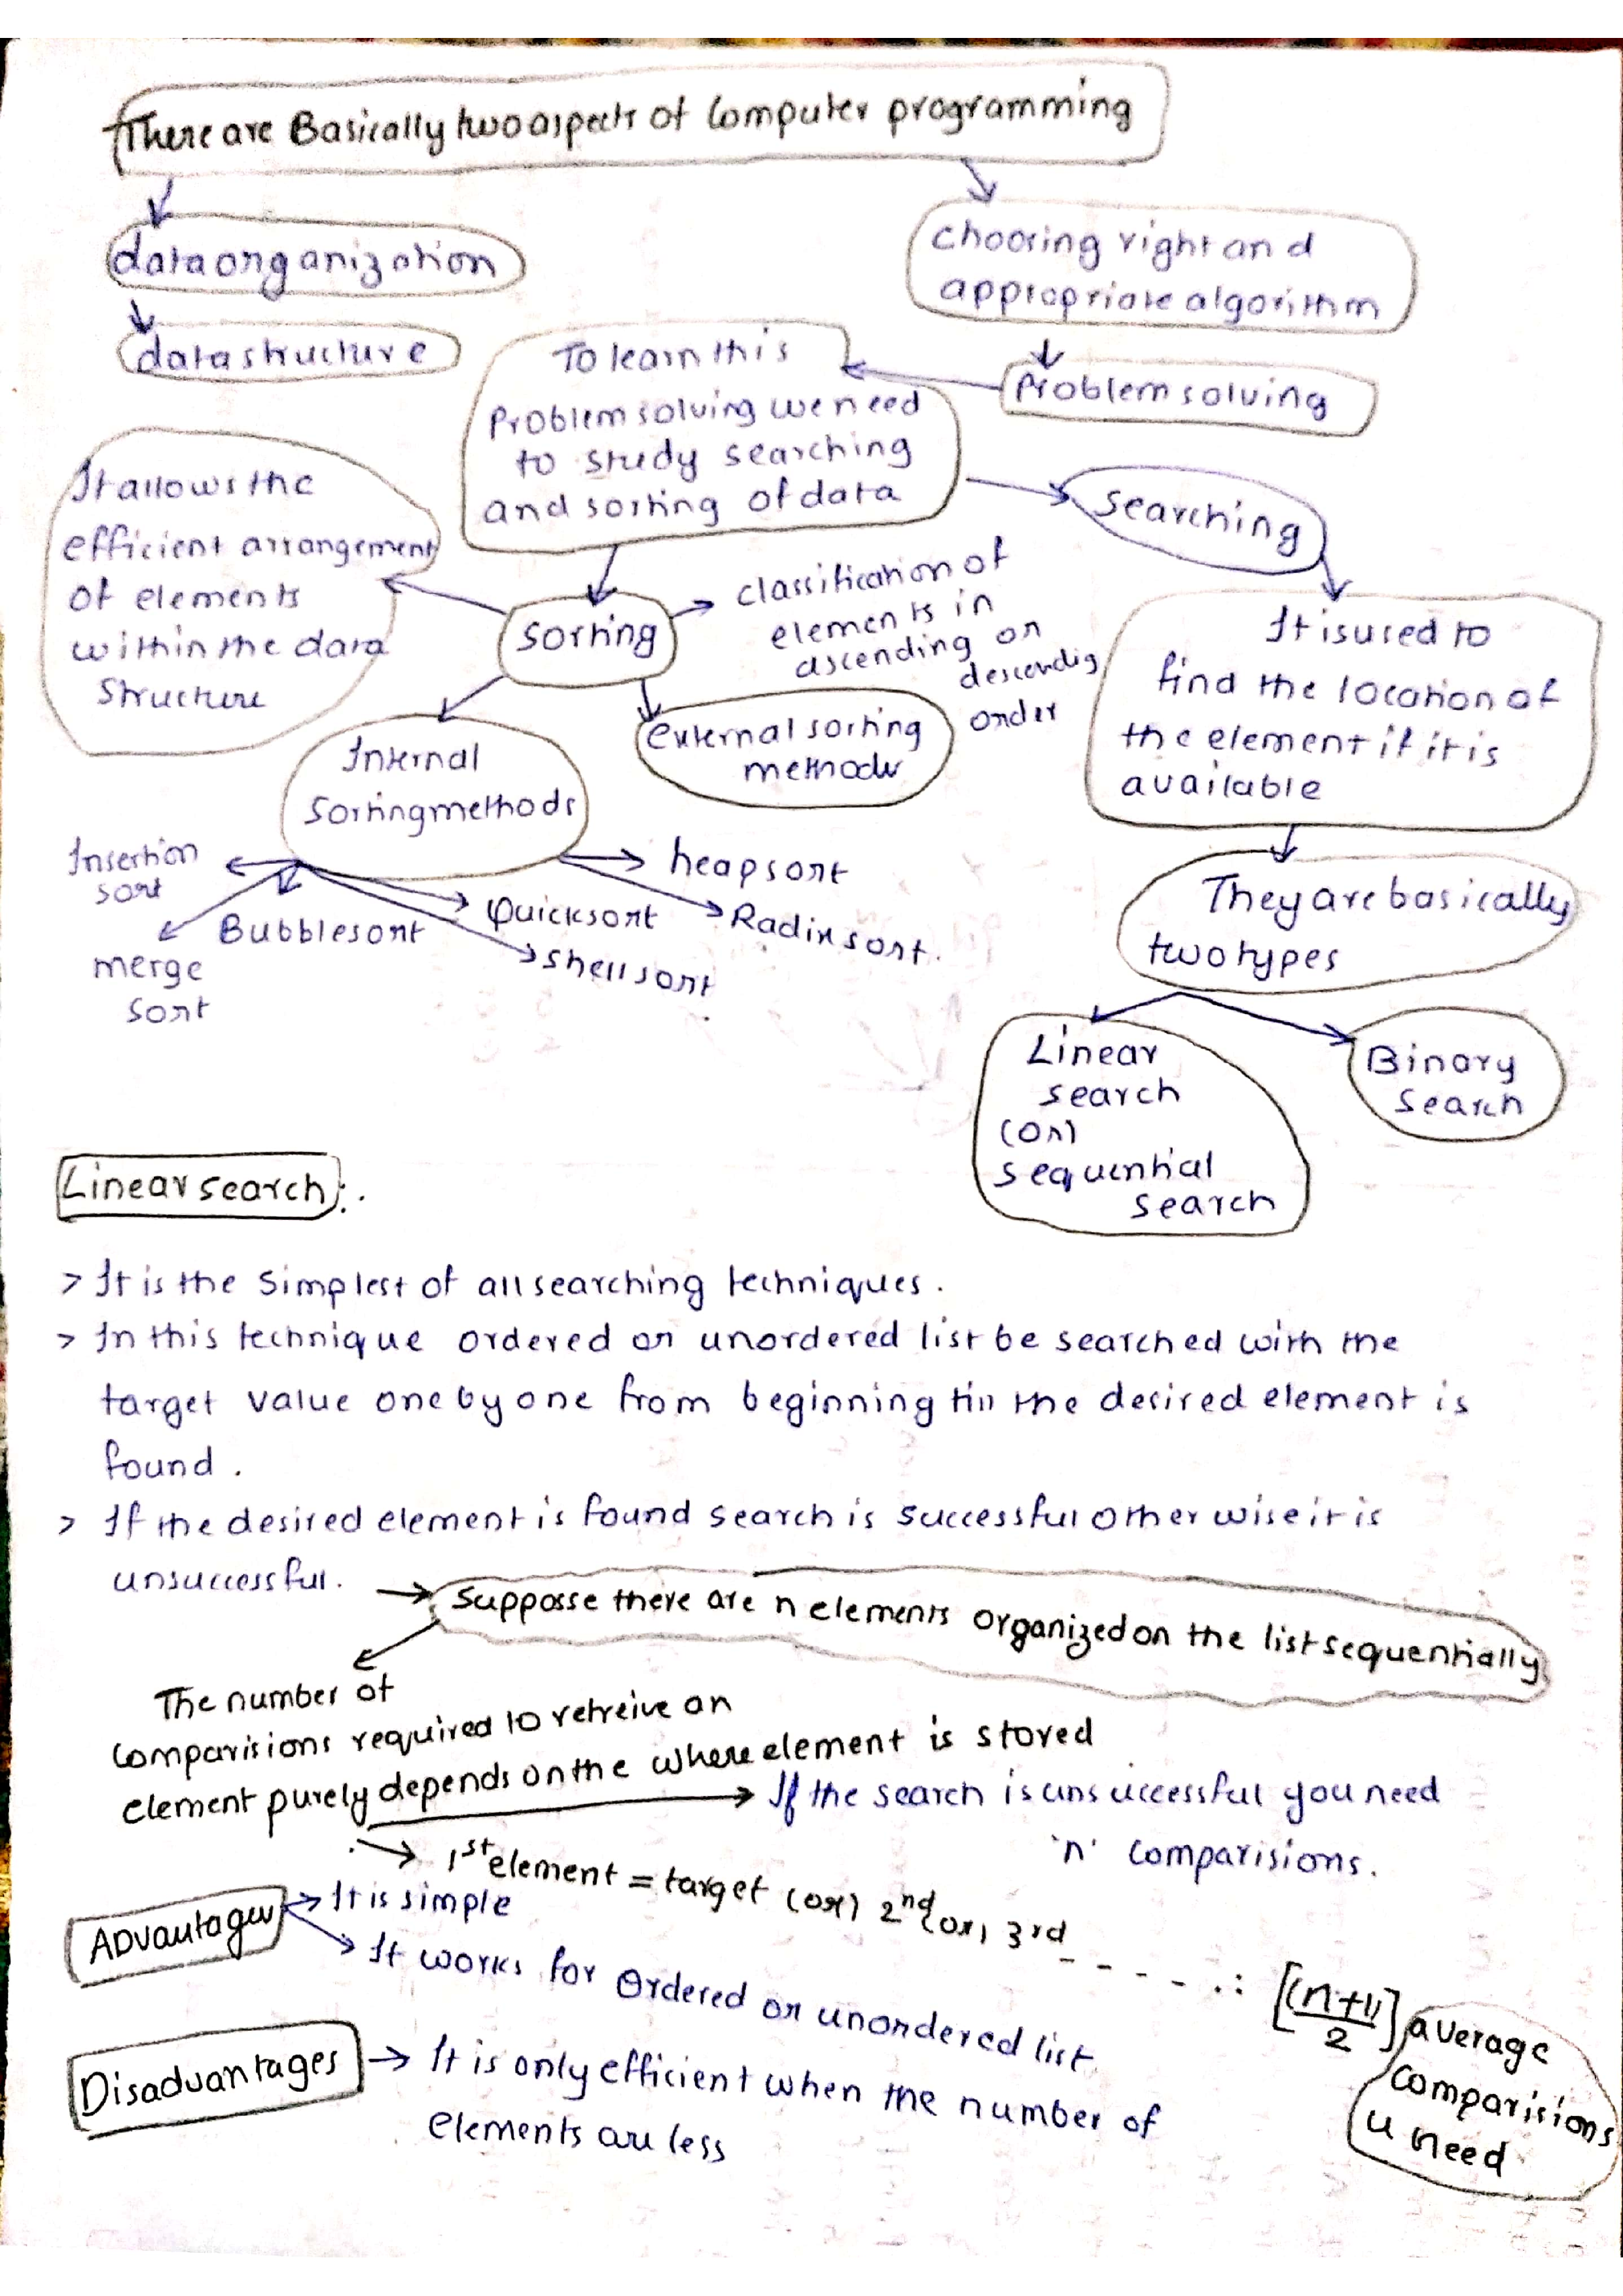 There are Basically two aspects of Computer programming
data organization
data structure
choosing right and
appropriate algorithm
Problem solving
To learn this
Problem solving we need
to study searching
and sorting of data
It allows the
efficient arrangement
of elements
within the data
structure
sorting
classification of
elements in
ascending or
descendig
order
searching
It is used to
find the location of
the element if it is
available
Internal
Sorting methods
external sorting
methods
Insertion
sort
merge
sort
Bubble sort
Quick sort
Shell sort
heap sort
Radix sort.
They are basically
two types
Linear
search
(or)
sequential
search
Binary
Search
Linear search :.
> It is the simplest of all searching techniques.
> In this technique ordered or unordered list be searched with the
target value one by one from beginning till the desired element is
found.
> If the desired element is found search is successful other wise it is
unsuccessful.
→ Supposse there are n elements organized on the list sequentially
The number of
comparisions required to retreive an
element purely depends on the where element is stored
→ If the search is unsuccessful you need
'n' comparisions.
→ 1st element = target (or) 2nd (or) 3rd - - - - - ∴ [(n+1)/2] average
comparisions
u need
Advantages
→ It is simple
→ It works for Ordered or unordered list
Disadvantages → It is only efficient when the number of
elements are less